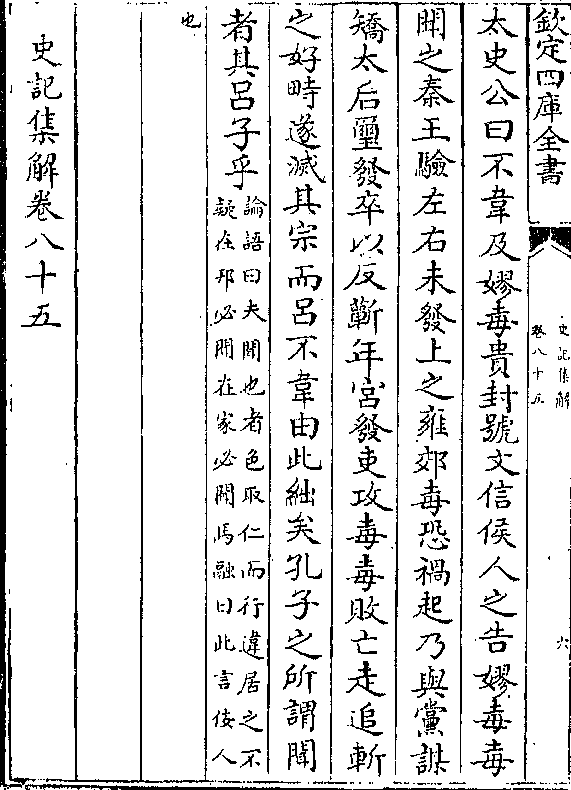 欽定四庫全書
史記集解
卷八十五
六
太史公曰不韋及嫪毐貴封號文信侯人之告嫪毐毐
聞之秦王驗左右未發上之雍郊毐恐禍起乃與黨謀
矯太后璽發卒以反蘄年宮發吏攻毐毐敗亡走追斬
之好畤遂滅其宗而呂不韋由此絀矣孔子之所謂聞
者其呂子乎
論語曰夫聞也者色取仁而行違居之不
疑在邦必聞在家必聞馬融曰此言佞人
也
史記集解卷八十五